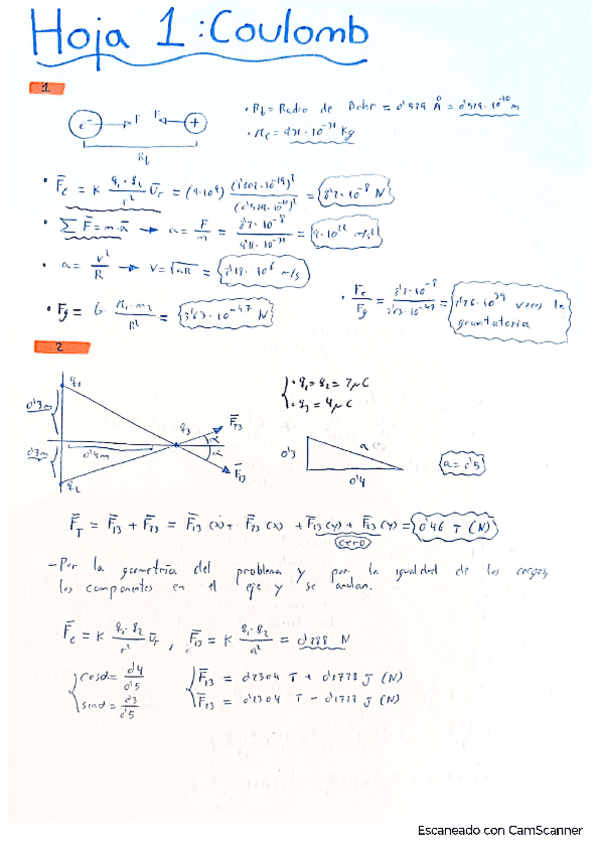 Hoja 1: Coulomb
1
e⁻ → F F ← +
R_b
• R_b = Radio de Bohr = 0'529 Å = 0'529·10⁻¹⁰ m
• M_e = 9'11·10⁻³¹ Kg
• F̄_e = K q₁·q₂/r² ū_r = (9·10⁹) (1'602·10⁻¹⁹)²/(0'529·10⁻¹⁰)² = 8'2·10⁻⁸ N
• ΣF̄ = m·ā → a = F/m = 8'2·10⁻⁸/9'11·10⁻³¹ = 9·10²² m/s²
• a = v²/R → V = √aR = 2'18·10⁶ m/s
• Fg = G· M₁·m₂/R² = 3'63·10⁻⁴⁷ N
• F_e/F_g = 8'2·10⁻⁸/3'63·10⁻⁴⁷ = 2'26·10³⁹ veces la
gravitatoria
2
q₁
0'3m
0'3m
0'4m
q₂
q₃
F̄₂₃
α
α
F̄₁₃
• q₁ = q₂ = 2μC
• q₃ = 4μC
0'3
a
0'4
a = 0'5
F̄_T = F̄₁₃ + F̄₂₃ = F̄₁₃(x) + F̄₂₃(x) + F̄₁₃(y) + F̄₂₃(y) = 0'46 i (N)
cero
- Por la geometría del problema y por la igualdad de las cargas,
los componentes en el eje y se anulan.
F̄_e = K q₁·q₂/r² ū_r , F̄₁₃ = K q₁·q₂/a² = 0'288 N
cosα = 0'4/0'5
senα = 0'3/0'5
F̄₁₃ = 0'2304 i + 0'1728 j (N)
F̄₂₃ = 0'2304 i − 0'1728 j (N)
Escaneado con CamScanner